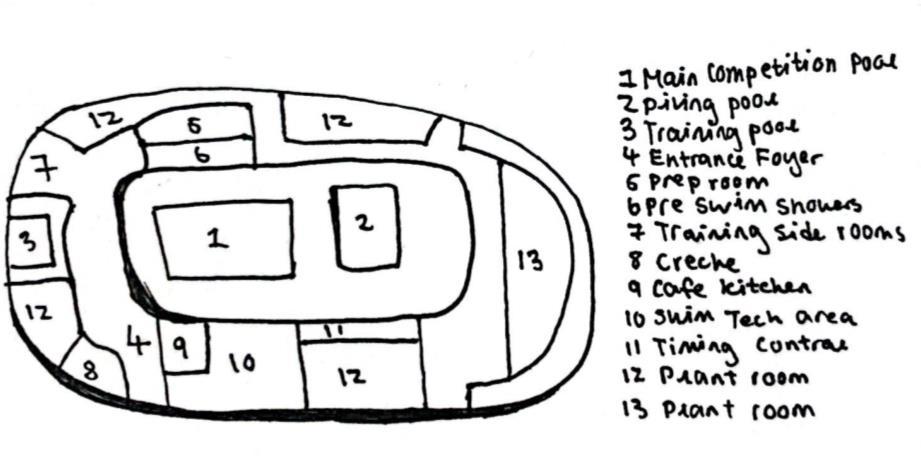 12
5
6
12
7
3
1
2
13
12
4
9
10
11
12
8
1 Main Competition Pool
2 Diving pool
3 Training pool
4 Entrance Foyer
5 Prep room
6 Pre Swim Showers
7 Training Side rooms
8 Creche
9 Cafe kitchen
10 Swim Tech area
11 Timing Control
12 Plant room
13 Plant room